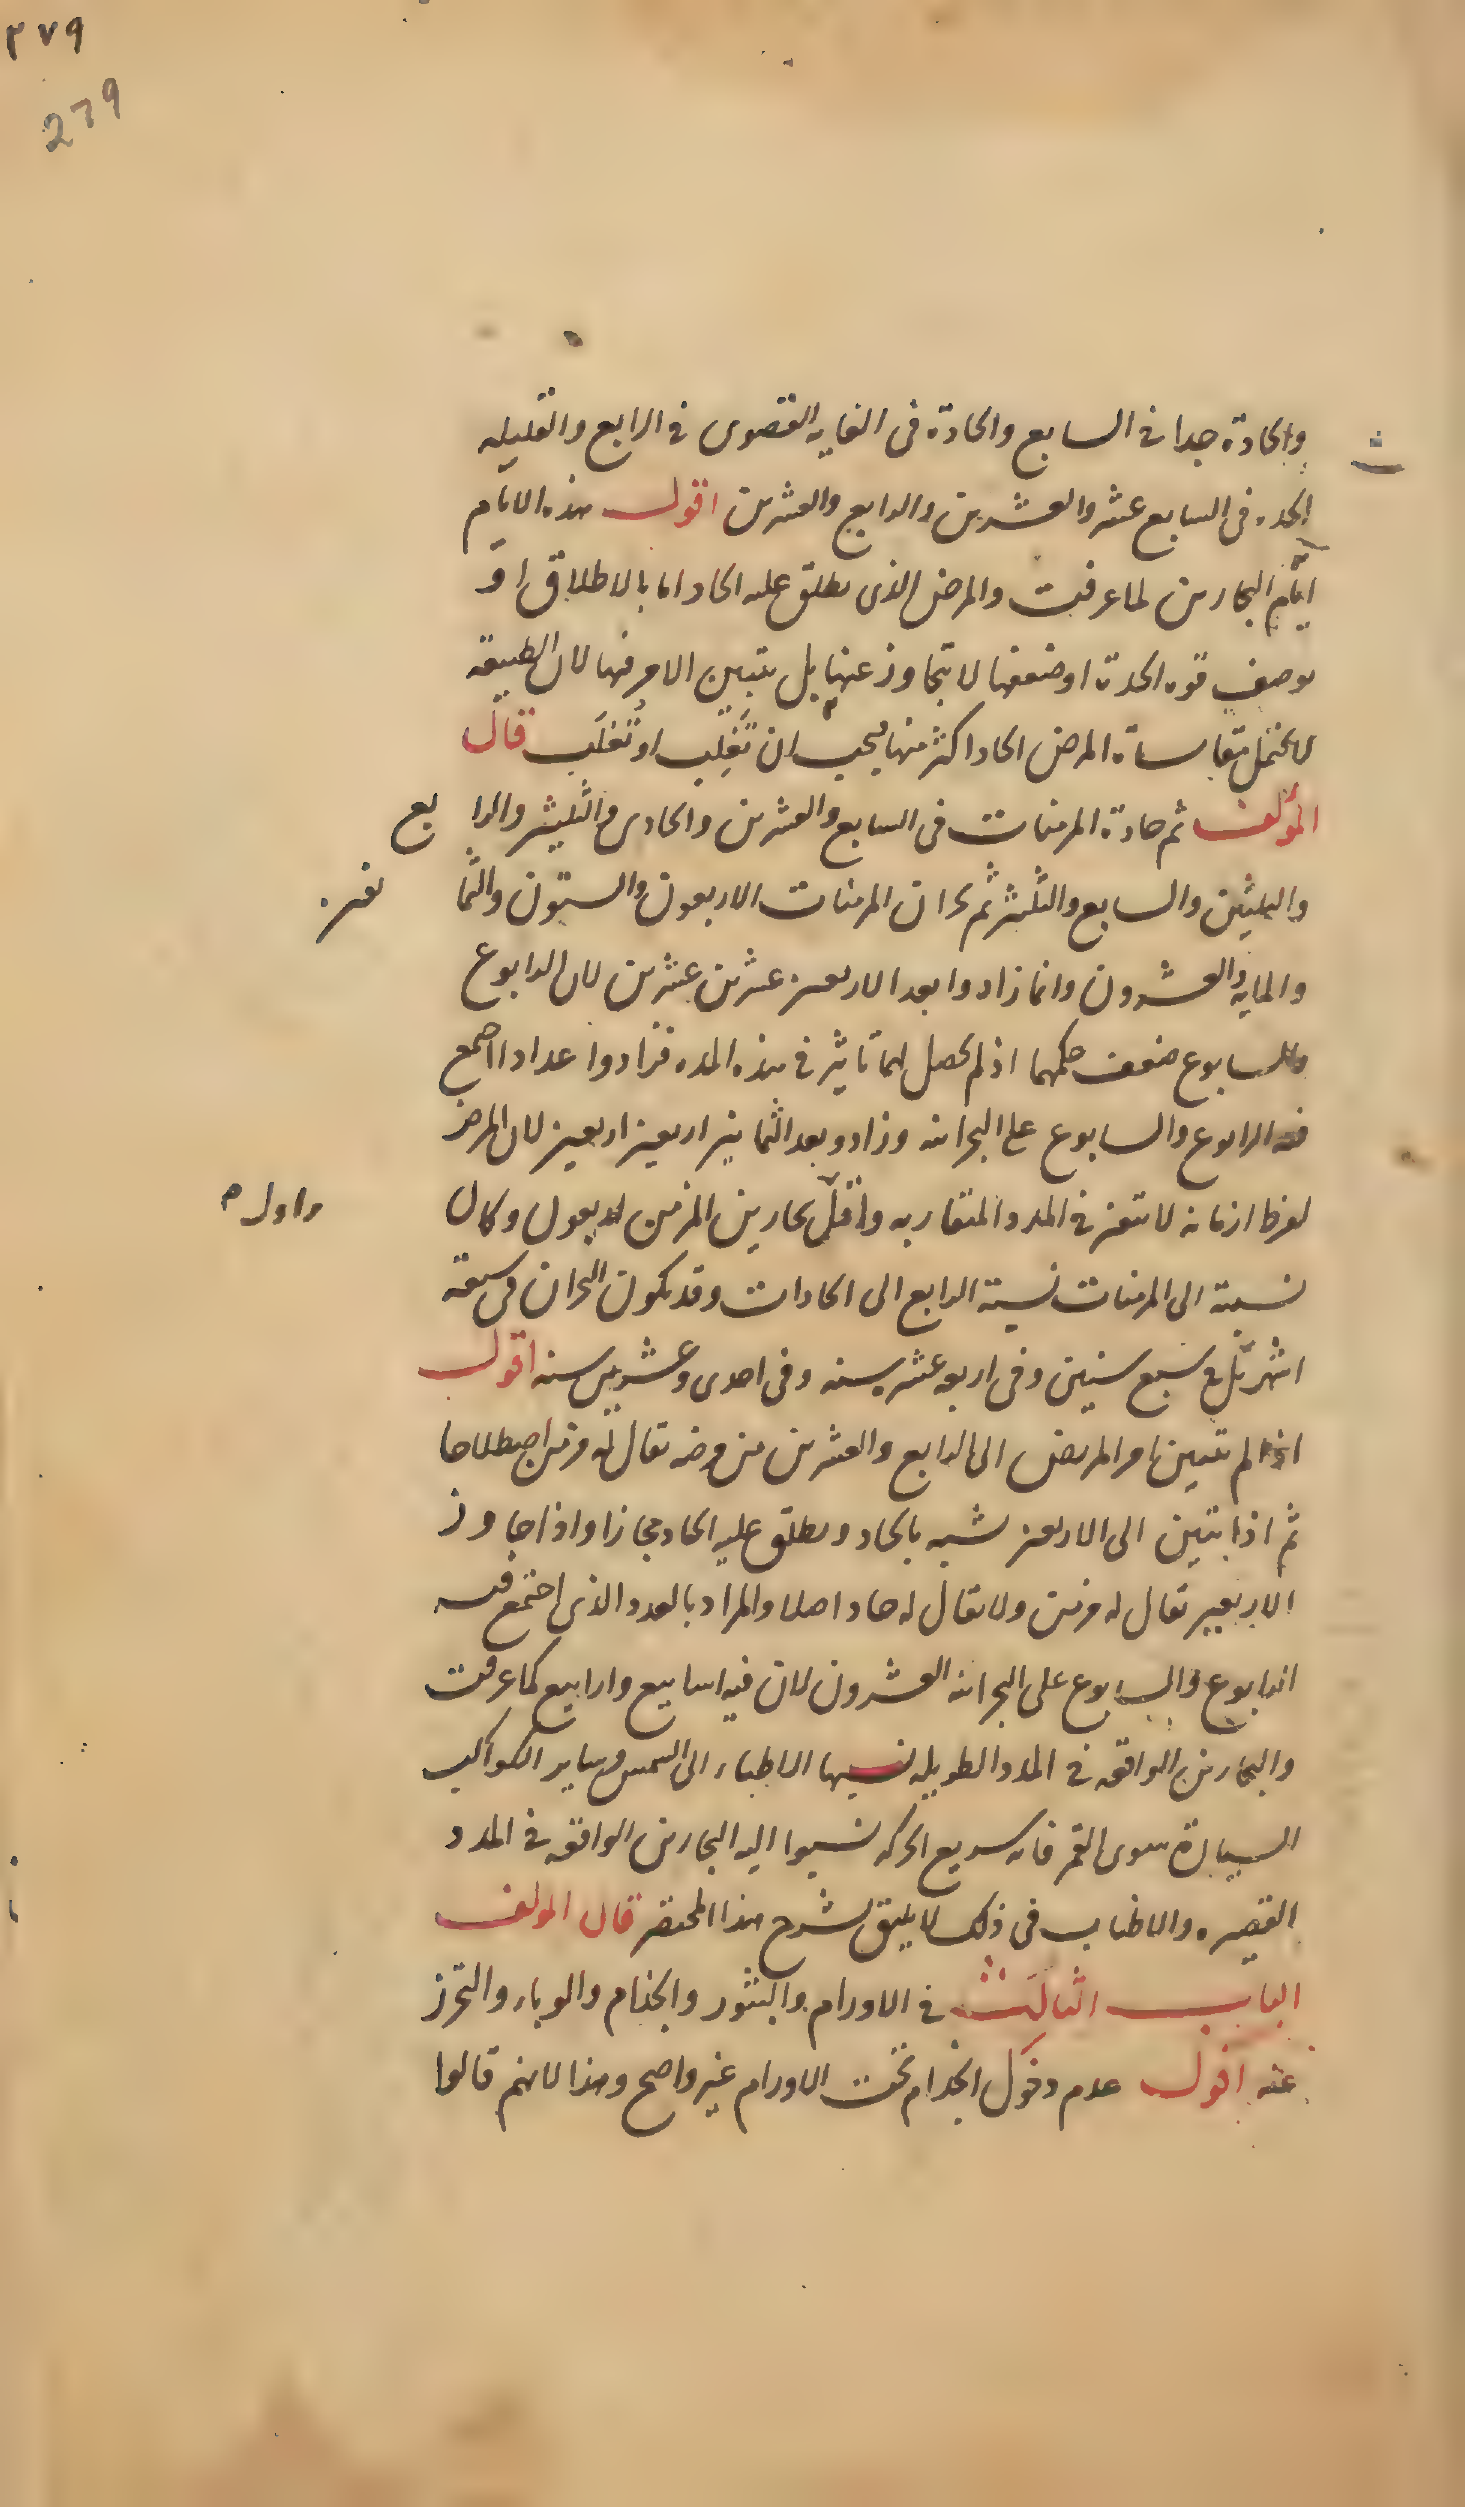 ٢٧٩
279
والحادة جدا فى السابع والحادة فى الغايه القصوى فى الرابع والقليله
الحده فى السابع عشر والعشرين والرابع والعشرين اقول هذه الايام
ايام البحارين لما عرفت والمرض الذى يطلق عليه الحاد اما بالاطلاق او
بوصف قوه الحدة او ضعفها لا يتجاوز عنها بل يتبين الامر فيها لان الطبيعه
لا تحتمل مقاساة المرض الحاد اكثر منها فيجب ان تَغلِب او تُغلَب قال
المؤلف ثم حادة المزمنات فى السابع والعشرين والحادى والثلثين والرابع
والثلثين والسابع والثلثين ثم بحران المزمنات الاربعون والستون والثمانون
والمايه والعشرون وانما زادوا بعد الاربعين عشرين عشرين لان الرابوع
والسابوع ضعف حكمهما اذ لم يحصل لهما تاثير فى هذه المده فزادوا عدادا اجتمع
فيه الرابوع والسابوع على البحرانيه وزادو بعد الثمانين اربعين اربعين لان المرض
لفرط ازمانه لا يتغير فى المدد المتقاربه واقل بحارين المزمن الاربعون وكان
واول
نسبته الى المزمنات نسبة الرابع الى الحادات وقد يكون البحران فى سبعة
اشهر بل فى سبع سنين وفى اربعه عشر سنه وفى احدى وعشرين سنه اقول
اذا لم يتبين امر المريض الى الرابع والعشرين من مرضه يقال له مزمن اصطلاحا
ثم اذا تبين الى الاربعين شبه بالحاد ويطلق عليه الحاد مجازا واذا جاوز
الاربعين يقال له مزمن ولا يقال له حاد اصلا والمراد بالعدد الذى اجتمع فيه
الرابوع والسابوع على البحرانيه العشرون لان فيه اسابيع وارابيع كما عرفت
والبحارين الواقعه فى المدد الطويله نسبها الاطباء الى الشمس وساير الكواكب
السيارة سوى القمر فانه سريع الحركه نسبوا اليه البحارين الواقعه فى المدد
القصيره والاطناب فى ذلك لا يليق بشرح هذا المختصر قال المولف
الباب الثالث فى الاورام والبثور والجذام والوباء والتحرز
عنه اقول عدم دخول الجذام تحت الاورام غير واضح وهذا لانهم قالوا